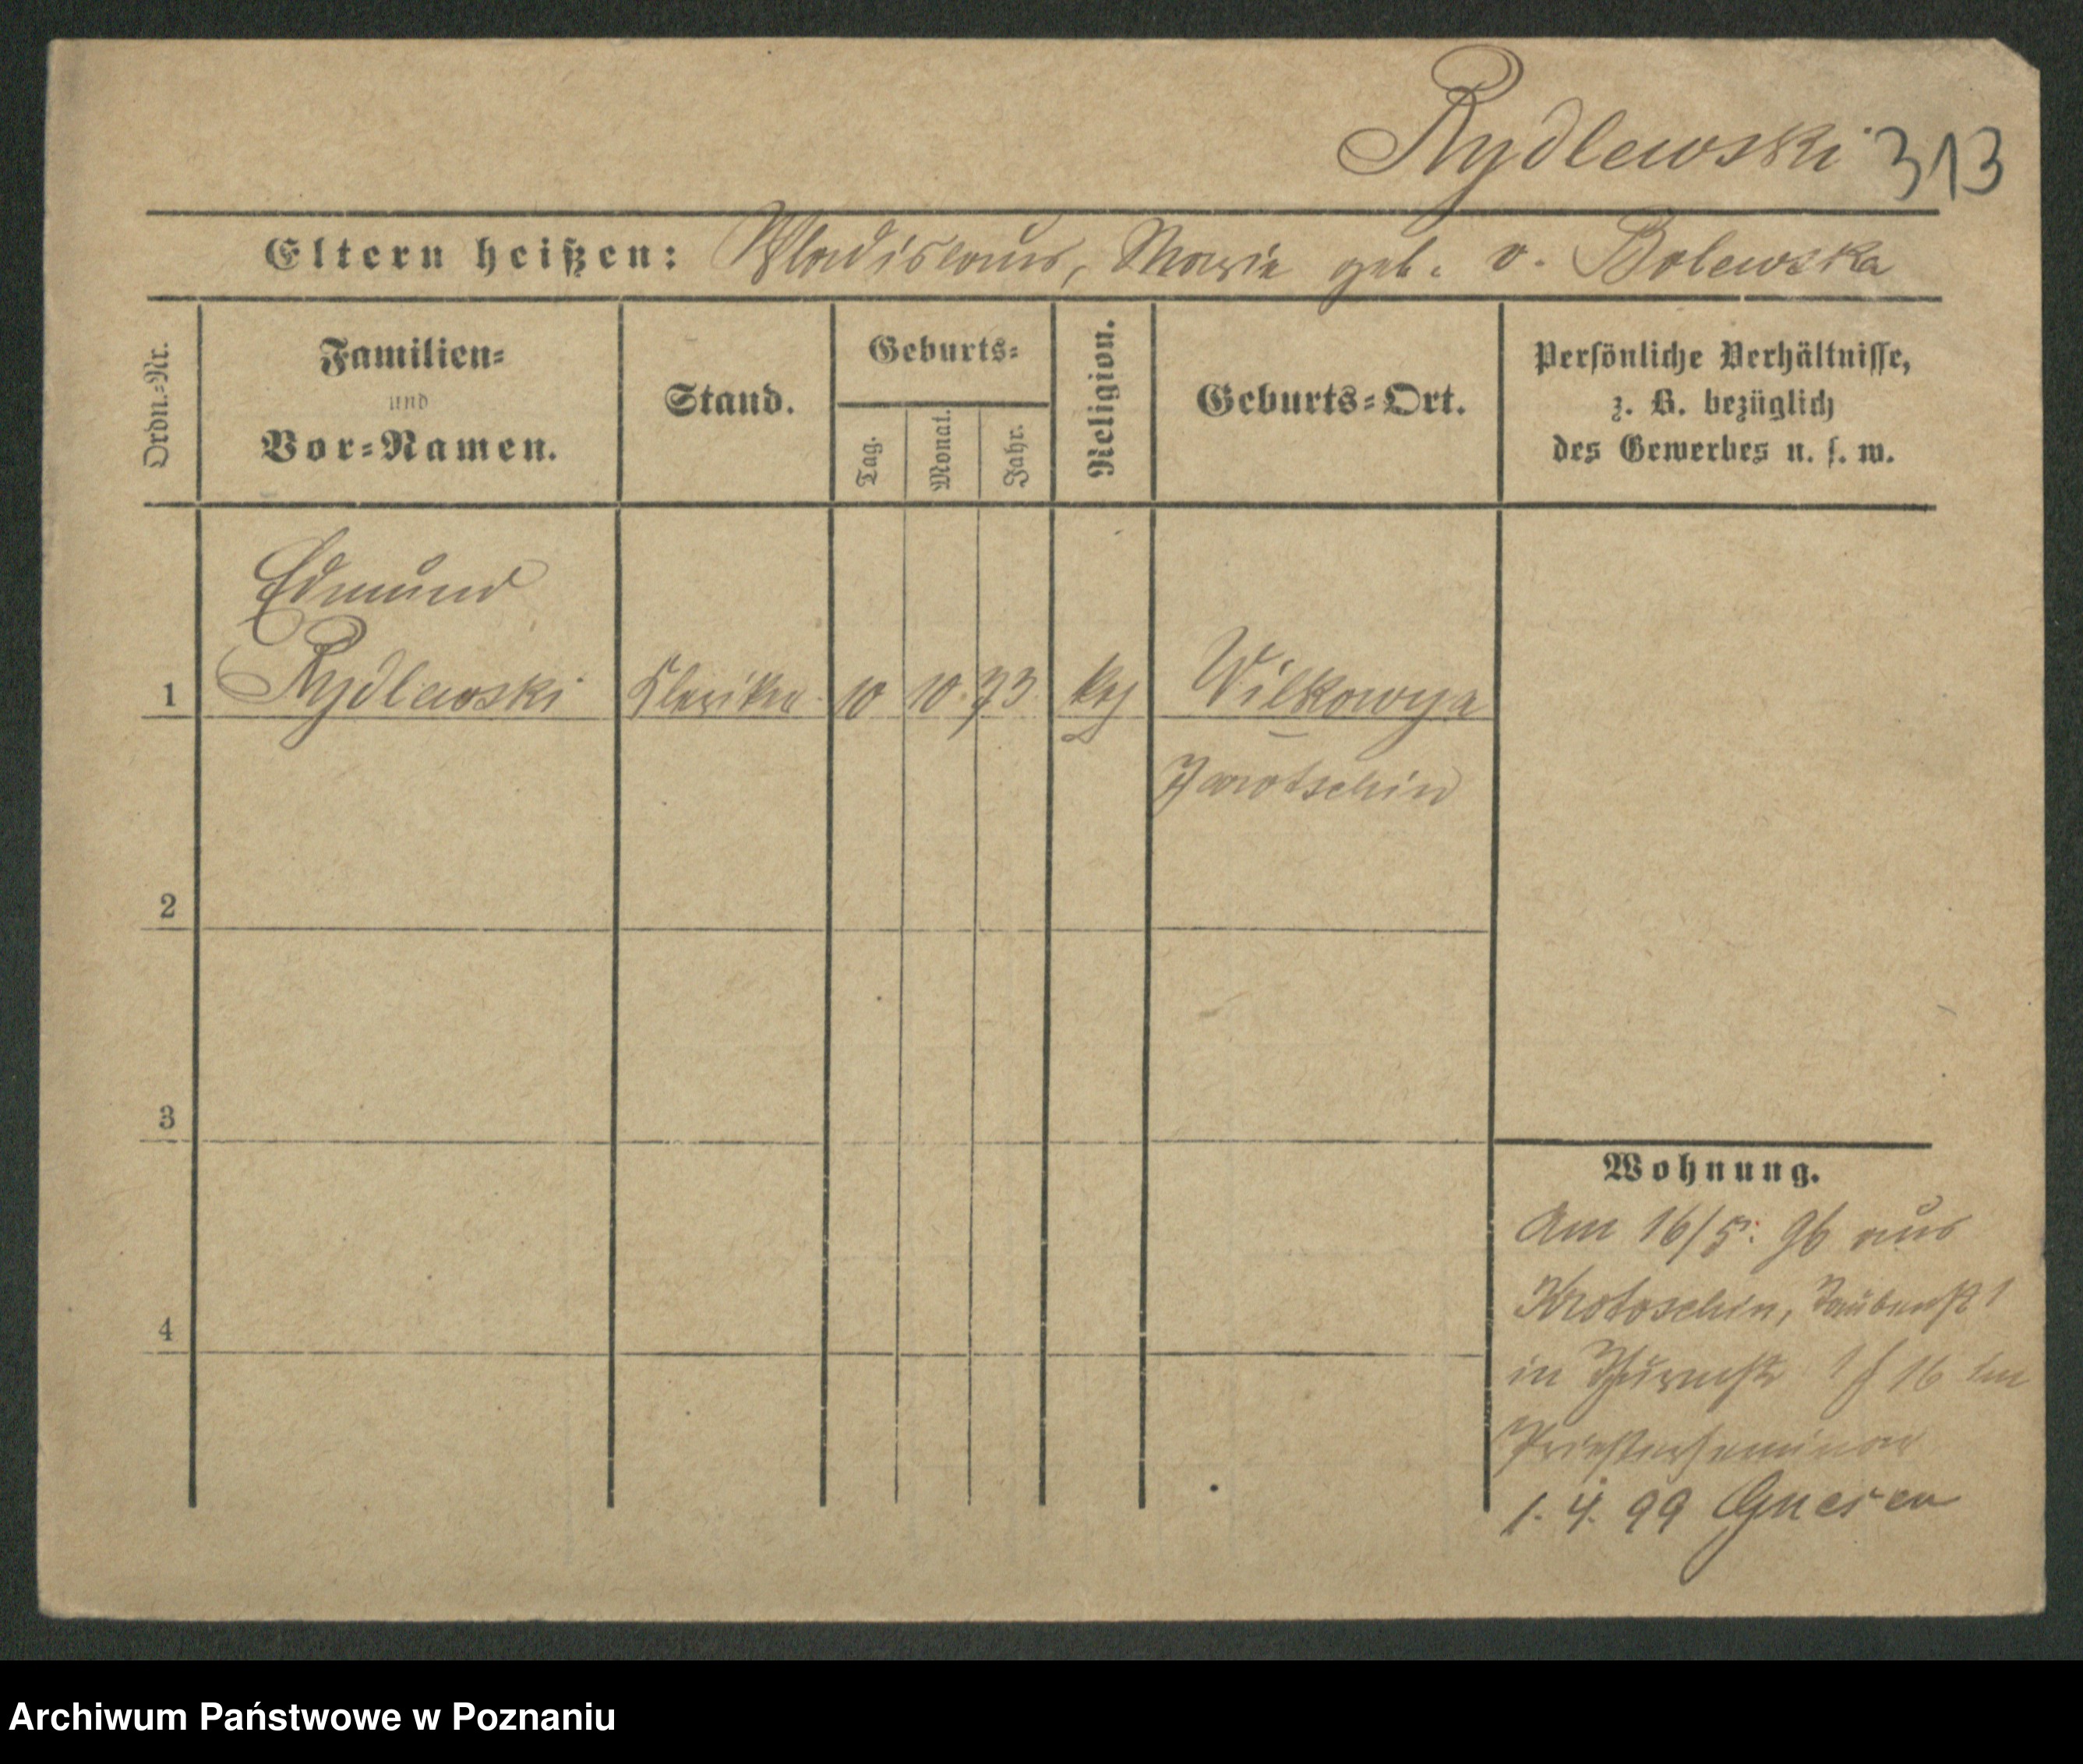 Rydlewski 313
Eltern heißen: Wladislaus, Marie geb. v. Bolewska
Ordn.-Nr.
Familien-
und
Vor-Namen.
Stand.
Geburts-
Tag.
Monat.
Jahr.
Religion.
Geburts-Ort.
Persönliche Verhältnisse,
z. B. bezüglich
des Gewerbes u. s. w.
Edmund
1 Rydlewski Kleriker 10 10. 73 kth Wilkowya
Jarotschin
2
3
4
Wohnung.
Am 16/5. 96 aus
Krotoschin, Taubenst 1
in Thurmstr 16 im
Priesterseminar
1. 4. 99 Gnesen
Archiwum Państwowe w Poznaniu